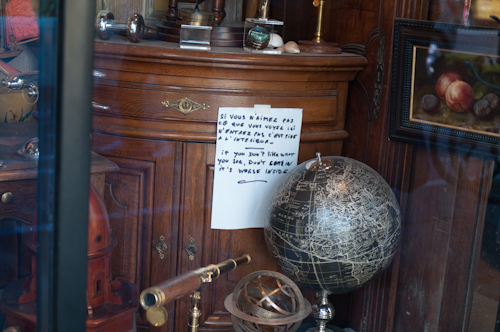 SI VOUS N'AIMEZ PAS
CE QUE VOUS VOYEZ ICI
N'ENTREZ PAS C'EST PIRE
A L'INTERIEUR..
IF YOU DON'T LIKE WHAT
YOU SEE, DON'T COME IN
IT'S WORSE INSIDE